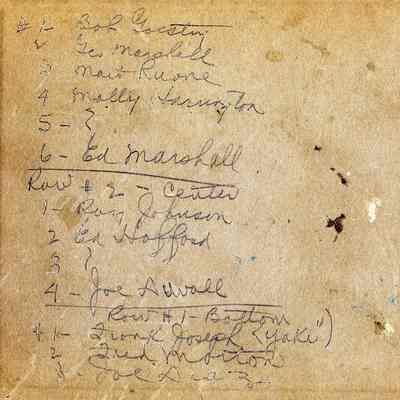 # 1- Bob
2 Geo Marshall
3 Mart Ruane
4 Molly Harrington
5 - ?
6 - Ed Marshall
Row # 2 - Center
1 - Roy Johnson
2 Ed Hafford
3 ?
4 - Joe Duvall
Row # 1 - Bottom
# 1- Frank Joseph ("Yaki")
2 Fred Morton
3 Joe